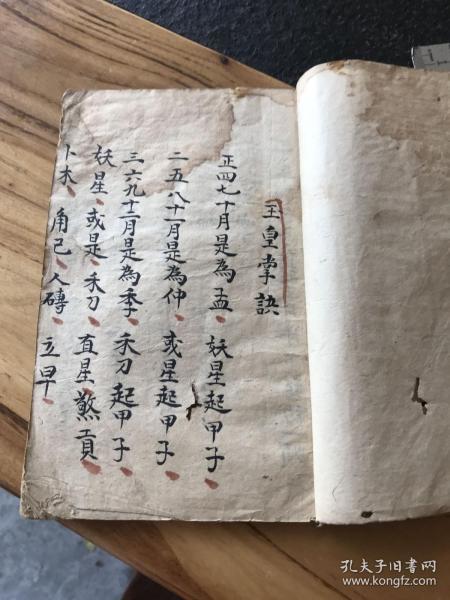 玉皇掌訣
正四七十月是為孟、妖星起甲子、
二五八十一月是為仲、或星起甲子、
三六九十二月是為季、禾刀起甲子、
妖星、或是、禾刀、直星、煞貢、
卜木、角己、人磚、立早、
孔夫子旧书网
www.kongfz.com